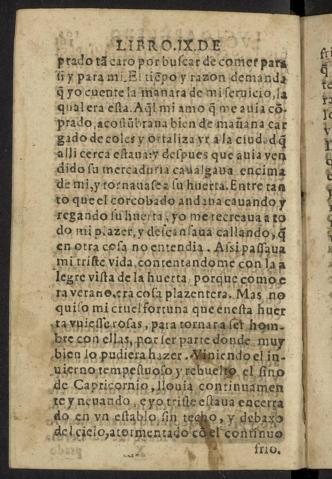 LIBRO.IX.DE
prado tã caro por buscar de comer para
si y para mi. El tiẽpo y razon demanda
q̃ yo cuente la manara de mi seruicio, la
qual era esta. Aq̃l mi amo q̃ me auia cõ
prado, acostũbrana bien de mañana car
gado de coles y ortaliza yr a la ciudad q̃
alli cerca estaua: y despues que auia ven
dido su mercaduria caualgaua encima
de mi, y tornauase a su huerta. Entre tan
to que el corcobado andaua cauando y
regando su huerta, yo me recreaua a to
do mi plazer, y descansaua callando, q̃
en otra cosa no entendia. Assi passaua
mi triste vida, contentandome con la a
legre vista de la huerta, porque como e
ra verano, era cosa plazentera. Mas no
quiso mi cruel fortuna que enesta huer
ta vuiesse rosas, para tornara ser hom-
bre con ellas, por ser parte donde muy
bien lo pudiera hazer. Viniendo el in-
uierno tempestuoso y rebuelto el sino
de Capricornio, llouia continuamen
te y neuando, e yo triste estaua encerra
do en vn establo sin techo, y debaxo
del cielo, atormentado cõ el continuo
frio.